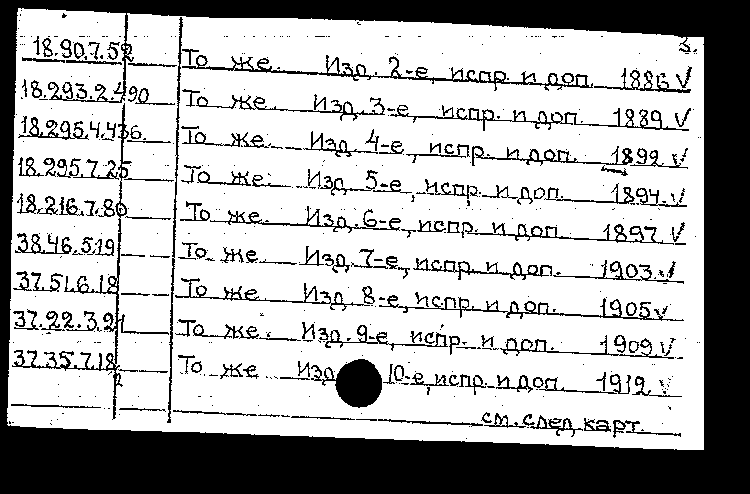 3.
18.90.7.52 То же. Изд. 2-е, испр. и доп. 1886. V
18.293.2.490 То же. Изд. 3-е, испр. и доп. 1889. V
18.295.4.436. То же. Изд. 4-е, испр. и доп. 1892. V
18.295.7.25 То же. Изд. 5-е, испр. и доп. 1894. V
18.216.7.80 То же. Изд. 6-е, испр. и доп. 1897. V
38.46.519 То же. Изд. 7-е, испр. и доп. 1903. V
37.51.6.18 То же Изд. 8-е, испр. и доп. 1905 V
37.22.3.21 То же. Изд. 9-е, испр. и доп. 1909 V
37.35.7.18 То же Изд 10-е, испр. и доп. 1912 V
2
см. след. карт.